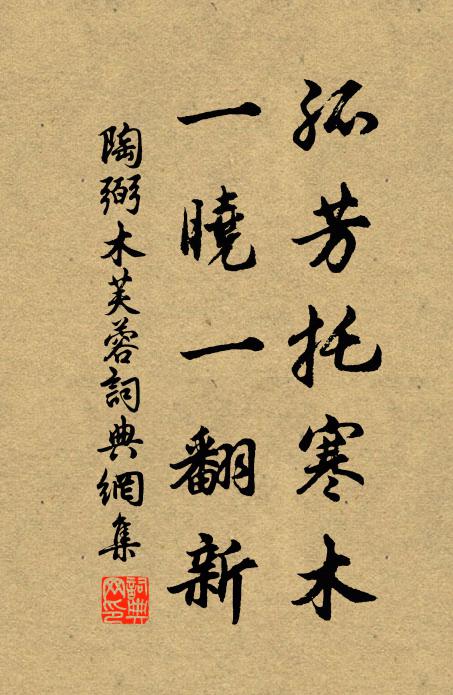 孤芳托寒木
一曉一翻新
陶弼木芙蓉詞典網集
詞典網印